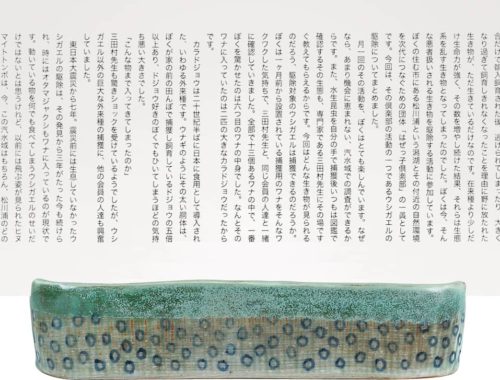 合だけで輸入飼育された後、逃げられてしまったり、大きく
なり過ぎて飼育しきれなくなったことを理由に野に放たれた
生き物が、ただ生きているだけなのです。在来種より少しだ
け生命力が強く、その数を増やし続けた結果、それらは生態
系を乱す生き物となってしまったのでした。ぼくは今、そん
な悪者扱いされる生き物を駆除する活動に参加しています。
ぼくの住む市にある松川浦という潟湖とその付近の自然環境
を次代につなぐための団体「はぜっ子倶楽部」の一員として
です。今回は、その倶楽部の活動の一つであるウシガエルの
駆除についてまとめました。
月一回のその活動を、ぼくはとても楽しんでいます。なぜ
なら、あまり機会に恵まれない、汽水域での調査ができるか
らです。また、水生昆虫を自分の手で捕獲後いつもは図鑑で
確認するその生態も、専門家である三田村先生にその場です
ぐ教えてもらえるからです。今回はどんな生き物が見られる
のだろう。駆除対象のウシガエルは捕獲できるのだろうか。
ぼくは一か月前から設置していた捕獲用のワナをそんなワ
クワクした気持ちで、三田村先生と、同じ会員の人達と一緒
に確認していきました。全部で十三個あるワナの中で、一番
ぼくを驚かせたのは六つ目のワナの中身でした。なんとその
ワナに入っていたのは十二匹の大きなカラドジョウだったから
です。
カラドジョウは二十世紀半ばに日本に食用として導入され
た、いわゆる外来種です。ウナギのようにその太い胴体は、
ぼくが家の前の田んぼで捕獲し飼育しているドジョウの五倍
以上あり、ドジョウ好きのぼくでもひいてしまうほどの気持
ち悪い大きさでした。
「こんな物まで入ってきてしまったのか」
三田村先生も驚きショックを受けているようでしたが、ウシ
ガエル以外の巨大な外来種の捕獲に、他の会員の人達も興奮
していました。
東日本大震災から七年。震災前には生息していなかったウ
シガエルの駆除は、その発見から三年がたった今も続けら
れ、時にはオタマジャクシもワナに入っているのが現状で
す。動いている物を何でも食べてしまうウシガエルのせいだ
けではないとは思うけれど、以前には飛ぶ姿が見られたヒヌ
マイトトンボは、今、この汽水域はもちろん、松川浦のどの